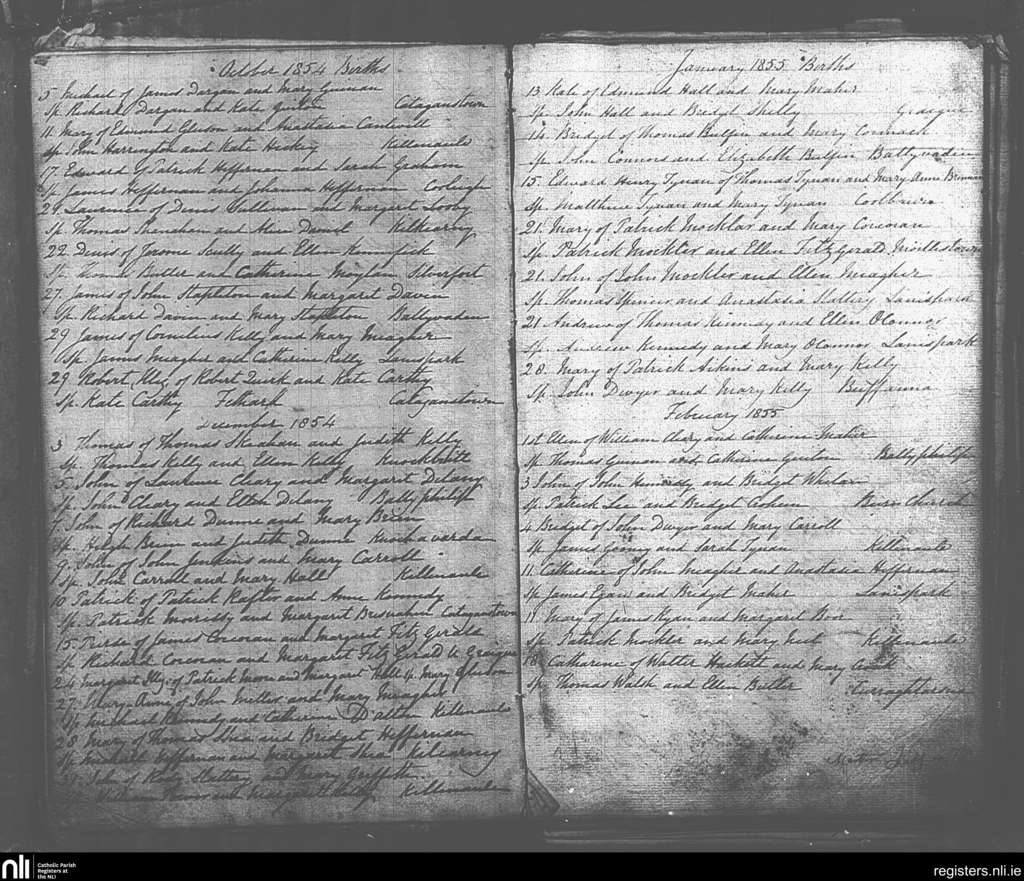 October 1854 Births
5 Michael of James Dargan and Mary Guinan
Sp. Richard Dargan and Kate Guilan Cataganstown
11 Mary of Edmund Gleeson and Anastasia Cantwell
Sp. John Harrington and Kate Hickey Killenaule
17 Edward of Patrick Heffernan and Sarah Graham
Sp. James Heffernan and Johanna Heffernan Coolagh
Laurence of Denis Sullivan and Margaret Looby
Sp. Thomas Shanahan and Alice Daniel Kilkearny
22 Denis of Jerome Scully and Ellen
Sp. Butler and Catherine Moylan
27 James of John Stapleton and Margaret Davin
Sp. Richard Davin and Mary Stapleton Ballyvaden
29 James of Cornilius Kelly and Mary Meagher
Sp. James Meagher and Catherine Kelly Lanispark
29 Robert Illeg. of Robert Quirk and Kate Carthy
Sp. Kate Carthy Fethard Cataganstown
December 1854
3 Thomas of Thomas Meahan and Judith Kelly
Sp. Thomas Kelly and Ellen Kelly
5 John of Laurence Cleary and Margaret Delany
Sp. John Cleary and Ellen Delany Ballyphilip
7 John of Richard Dunne and Mary Brien
Sp. Hugh Brien and Judith Dunne Knockavarda
9 John of John Jenkins and Mary Carroll
Sp. John Carroll and Mary Hall Killenaule
10 Patrick of Patrick Rafter and Anne Kennedy
Sp. Patrick Morrissy and Margaret Bresnahan Cataganstown
15 of James Corcoran and Margaret Fitz Gerald
Sp. Richard Corcoran and Margaret Fitz Gerald Graigue
24 Margaret Illg. of Patrick Moore and Margaret Hall Mary Gleeson
27 Mary Anne of John Millea and Mary Meagher
Sp. Michael Kennedy and Catherine Dalton Killenaule
28 Mary of Thomas Shea and Bridget Heffernan
Sp. Michael Heffernan and Margaret Shea Kilkearny
John of Slattery and Mary Griffith
and Margaret Killenaule
January 1855 Births
13 Kate of Edmund Hall and Mary Maher
Sp. John Hall and Bridget Shelly Graigue
14 Bridget of Thomas Bulfin and Mary Cormack
Sp. John Connors and Elizabeth Bulfin Ballyvaden
15 Edward Henry Tynan of Thomas Tynan and Mary Anne Brennan
Sp. Matthew Tynan and Mary Tynan Coolbawn
21 Mary of Patrick Mockler and Mary Corcoran
Sp. Patrick Mockler and Ellen FitzGerald
21 John of John Mockler and Ellen Meagher
Sp. Thomas Spencer and Anastasia Slattery Lanispark
21 Andrew of Thomas Kennedy and Ellen OConnor
Sp. Andrew Kennedy and Mary OConnor Lanispark
28 Mary of Patrick Aikins and Mary Kelly
Sp. John Dwyer and Mary Kelly Buffanna
February 1855
1st Ellen of William Cleary and Catherine Maher
Sp. Thomas Guinan and Catherine Guilan Ballyphilip
3 John of John Kennedy and Bridget Whelan
Sp. Patrick Lee and Bridget Church
4 Bridget of John Dwyer and Mary Carroll
Sp. James and Sarah Tynan Killenaule
11 Catherine of John Meagher and Anastasia Heffernan
Sp. James Egan and Bridget Maher Lanispark
17 Mary of James Ryan and Margaret
Sp. Patrick Mockler and Mary Killenaule
18 Catherine of Walter Hackett and Mary
Sp. Thomas Walsh and Ellen Butler
nli Catholic Parish
Registers at
the NLI
registers.nli.ie